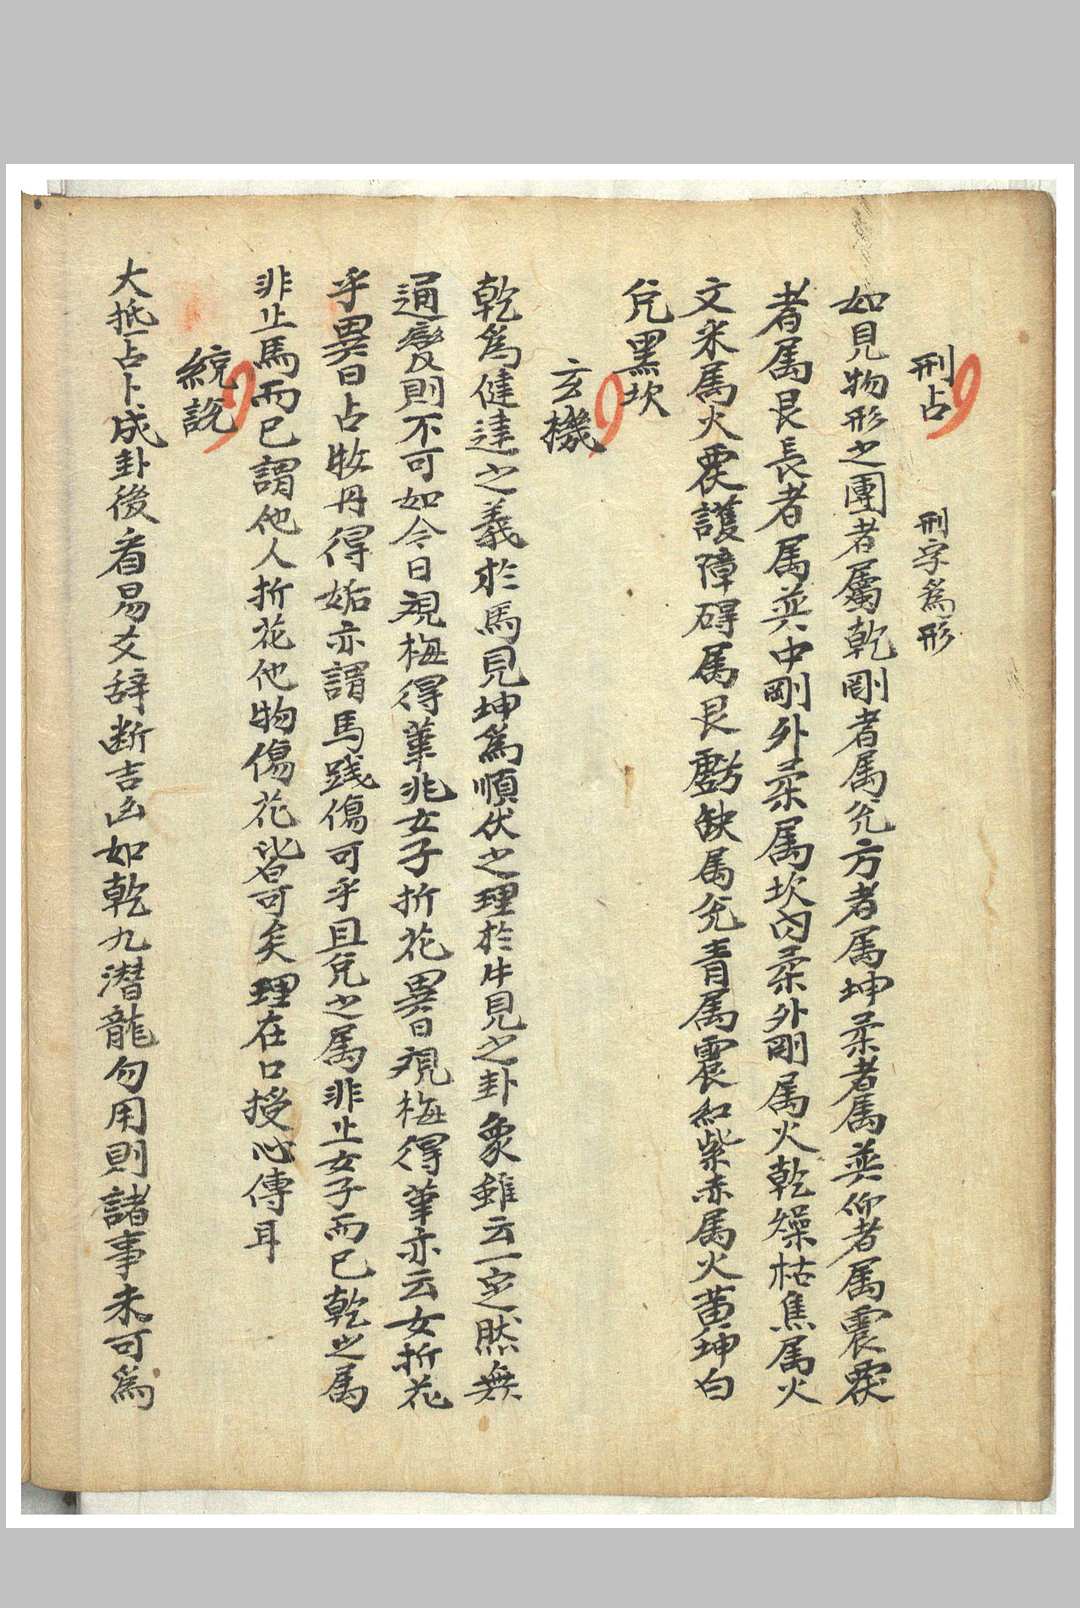 刑占 刑字為形
如見物形之團者屬乾剛者属兊方者属坤柔者属巽仰者属震覆
者属艮長者属巽中剛外柔属坎内柔外剛属火乾燥枯焦属火
文米属火覆護障碍属艮虧缺属兊青属震紅紫赤属火黄坤白
兊黒坎
玄機
乾為健達之義於馬見坤為順伏之理於牛見之卦象雖云一定然無
通變則不可如今日視梅得革兆女子折花異日視梅得革亦云女折花
乎異日占牧丹得姤亦謂馬践傷可乎且兊之属非止女子而已乾之属
非止馬而已謂他人折花他物傷花皆可矣理在口授心傳耳
統説
大抵占卜成卦後看易爻辞断吉凶如乾九潜龍勿用則諸事未可為